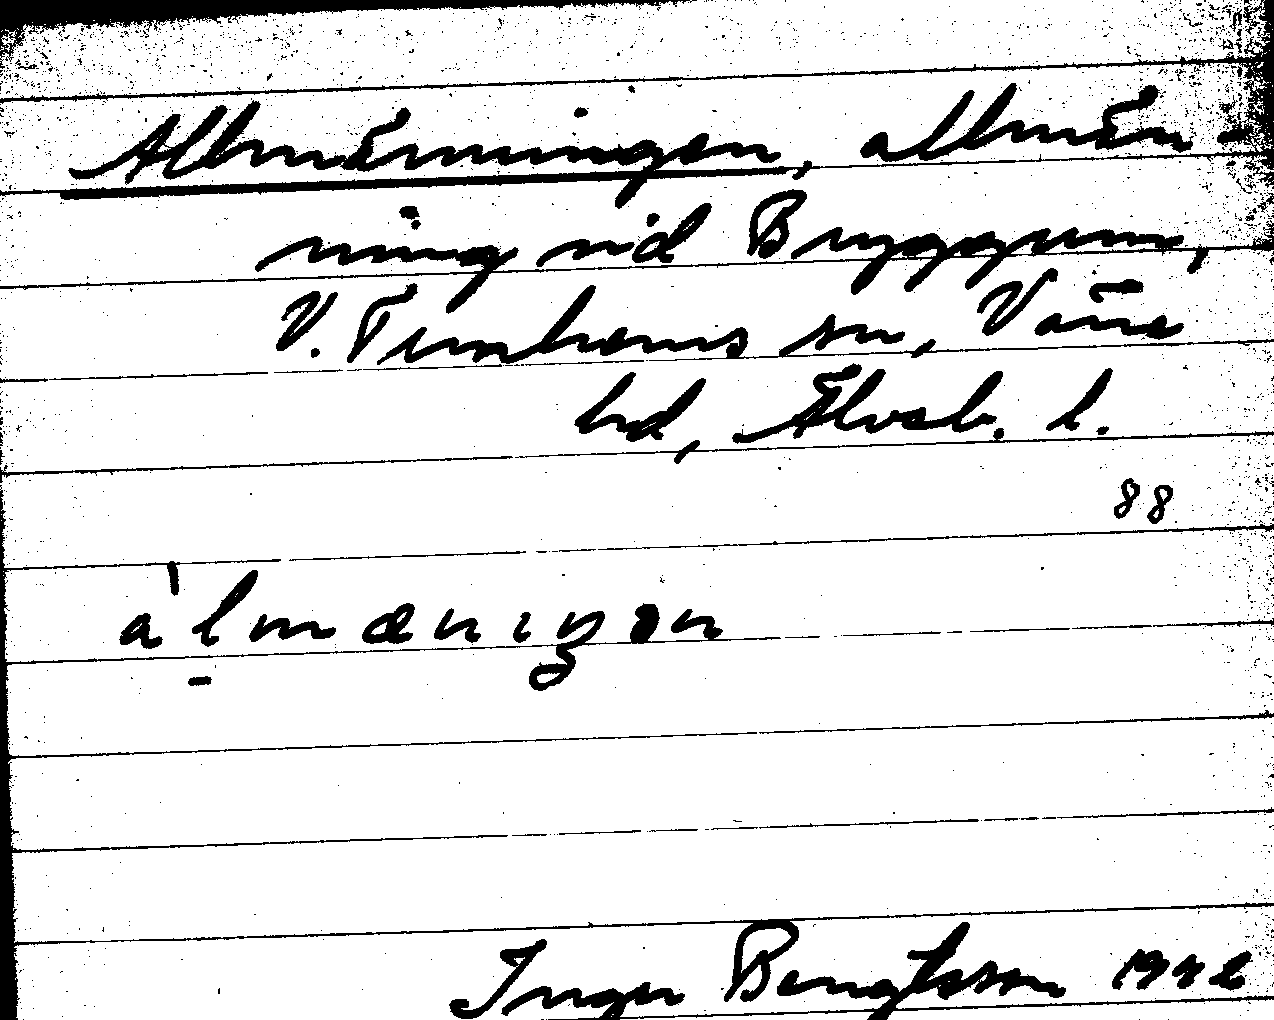 Allmänningen, allmän-
ning vid Bryggum,
V. Tunhems sn, Väne
hd, Älvsb. l.
88
àlmæniŋən
Inger Bengtsson 1942